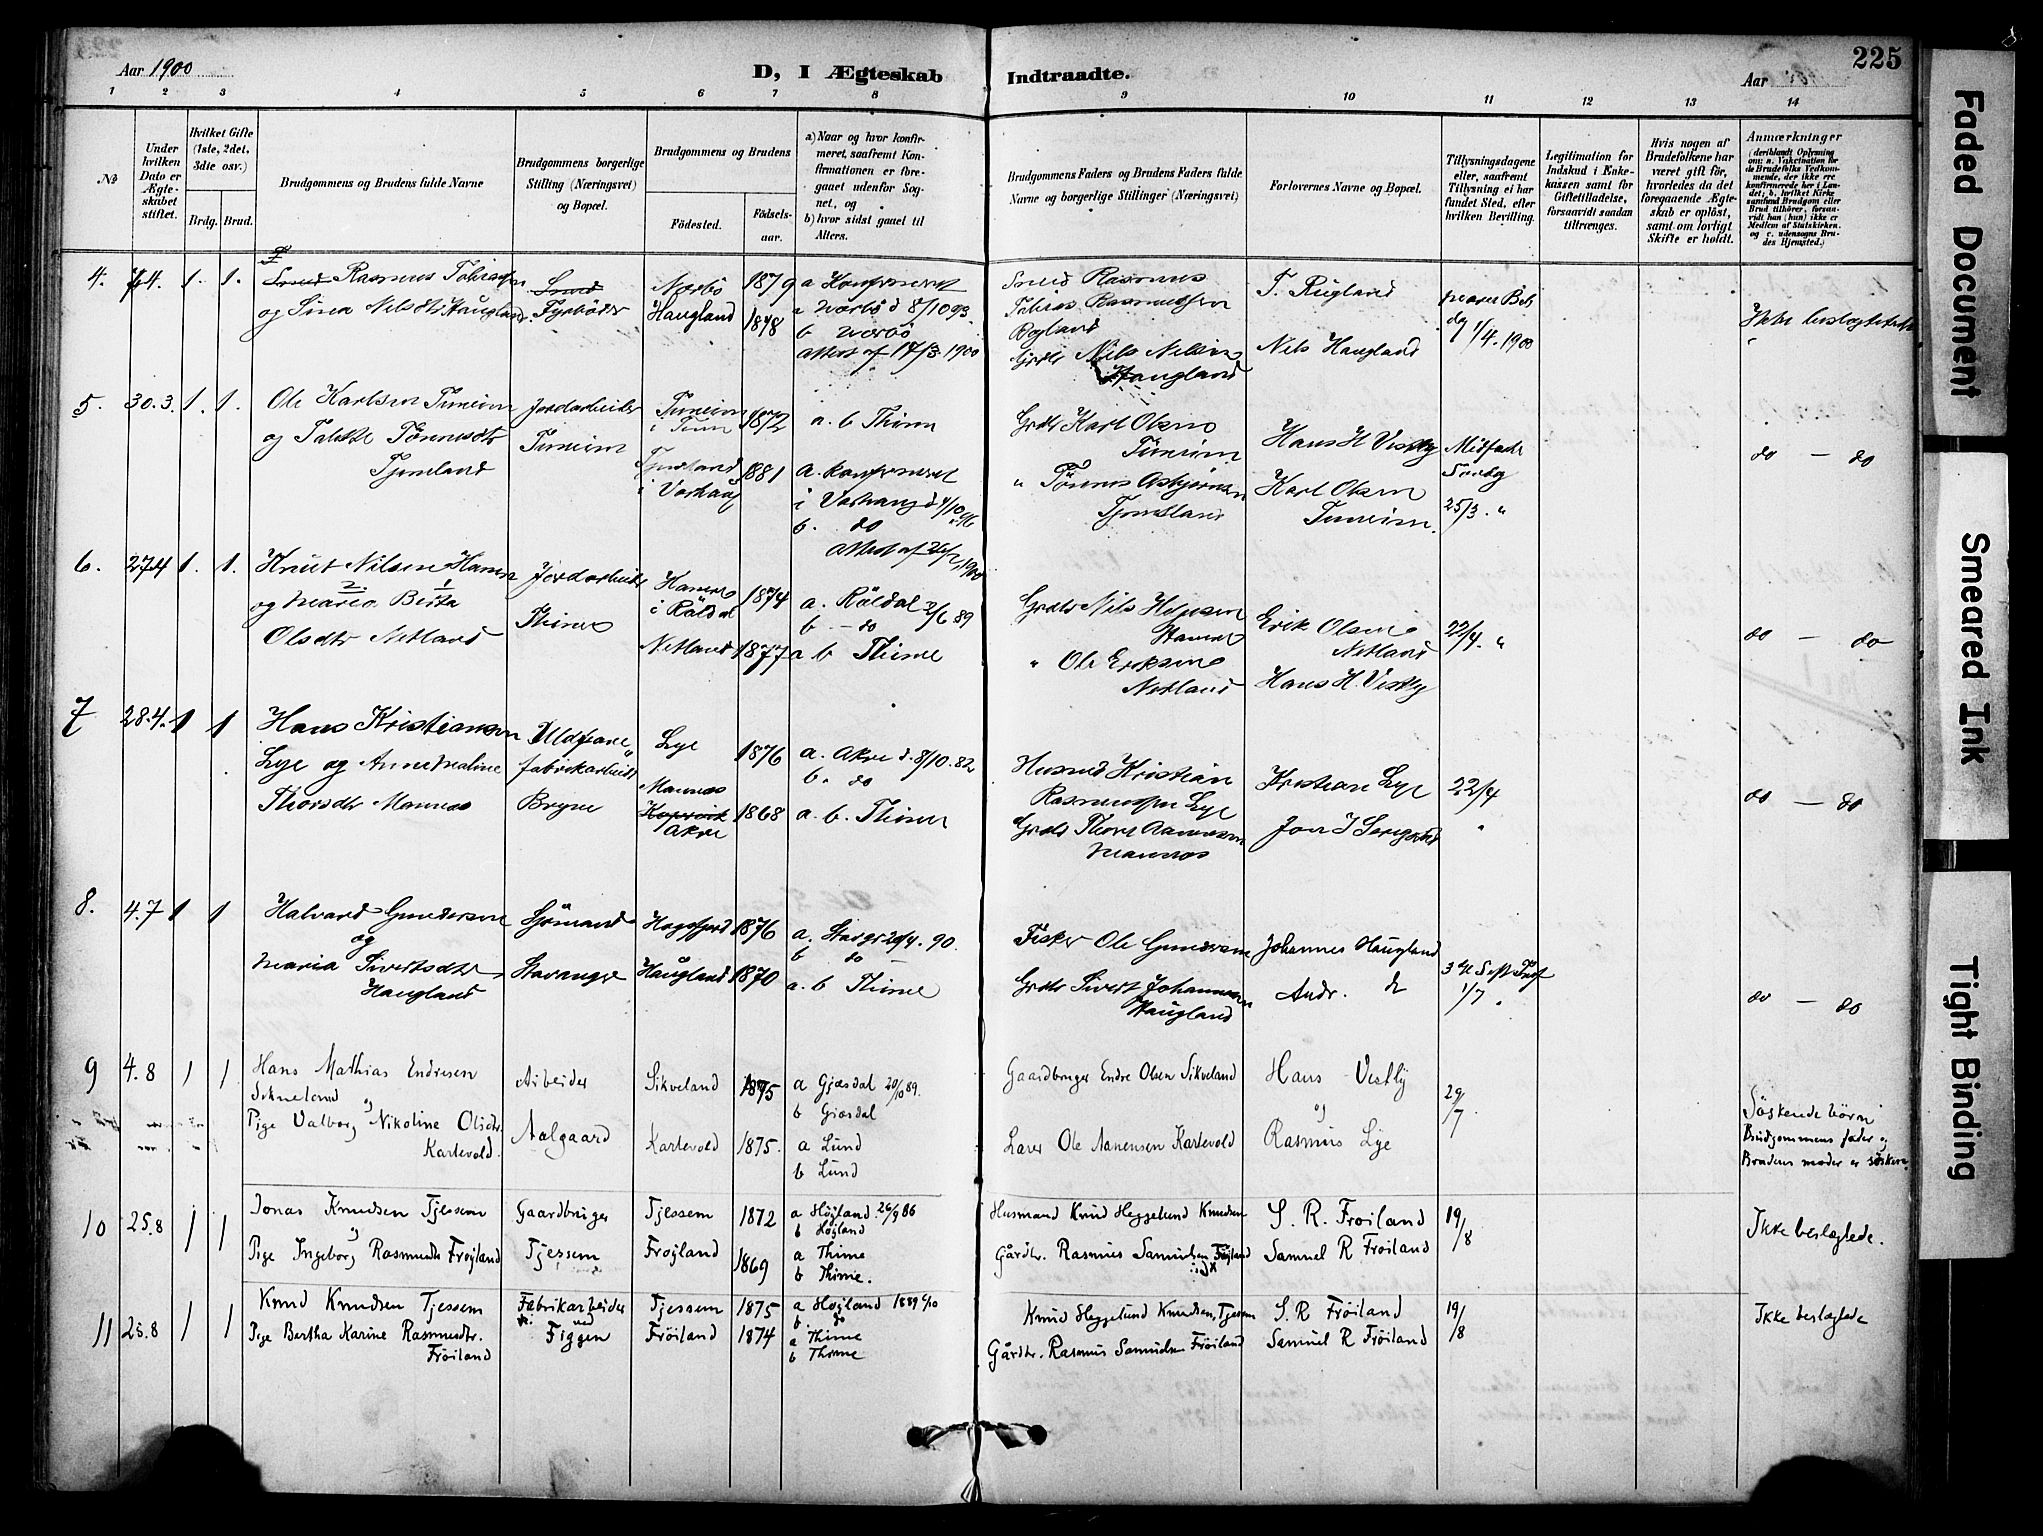 Aar 1900
D, I Ægteskab Indtraadte.
Aar
225
1 2 3 4 5 6 7 8 9 10 11 12 13 14
№
Under hvilken Dato er Ægteskabet stiftet.
Hvilket Gifte (1ste, 2det, 3die osv.)
Brdg. Brud.
Brudgommens og Brudens fulde Navne
Brudgommens borgerlige Stilling (Næringsvei) og Bopæl.
Brudgommens og Brudens
Fødested.
Fødselsaar.
a) Naar og hvor konfirmeret, saafremt Konfirmationen er foregaaet udenfor Sognet, og
b) hvor sidst gaaet til Alters.
Brudgommens Faders og Brudens Faders fulde Navne og borgerlige Stillinger (Næringsvei)
Forlovernes Navne og Bopæl.
Tillysningsdagene eller, saafremt Tillysning ei har fundet Sted, efter hvilken Bevilling.
Legitimation for Indskud i Enkekassen samt for Giftetilladelse, forsaavidt saadan tiltrænges.
Hvis nogen af Brudefolkene har været gift før, hvorledes da det foregaaende Ægteskab er opløst, samt om lovligt Skifte er holdt.
Anmærkninger
(deriblandt Oplysning om: a. Vakcination for de Brudefolks Vedkommende, der ikke ere konfirmerede her i Landet; b. hvilket Kirkesamfund Brudgom eller Brud tilhører, forsaavidt han (hun) ikke er Medlem af Statskirken, og c. udensogns Brudes Hjemsted.)
4. 1. 1. Rasmus Tobiassen
og Sina Nelsdtr Haugland
Smed
Fyrbøder
Nærbø 1879
Haugland 1878
a Konfirmeret
i Nærbø d 8/10 93
b Nærbø
attest af 17/3 1900
Smed Rasmus
Tobias Rasmussen
Bogland
Grdbr Nils Nilsen
Haugland
T. Rugland
Nels Haugland
1/4. 1900
Ikke beslægtede
5. 30.3. 1. 1. Ole Karlsen Tuneim
og Talette Tønnesdtr
Tjemsland
Jordarbeider
Tuneim
Tuneim
i Time 1872
Tjemsland
i Varhaug 1881
a. b Thime
a. konfirmeret
i Varhaug d 4/10 96
b. do
attest af
Grdbr Karl Olsen
Tuneim
" Tønnes Asbjørnsen
Tjemsland
Hans H Vestly
Karl Olsen
Tuneim.
Midfaste
Søndag
25/3. "
do — do
6. 27.4 1. 1. Knut Nilsen Hamre
og Maria Berta
2 1
Olsdtr Netland
Jordarbeider
Thime
Hamre
i Røldal 1874
Netland 1877
a. Røldal 2/6 89
b — do
a b Thime
Grdbr Nils
Hamre
" Ole Eriksen
Netland
Erik Olsen
Netland
Hans H. Vestly
22/4. "
do — do
7 28.4. 1 1 Hans Kristiansen
Lye og Anne Maline
Thorsdtr Mannes
Uldvare"
fabrikarbeider
Bryne
Lye 1876
Mannes
Kopervik
Akre 1868
a. Akre d. 8/10. 82
b. do
a. b. Thime
Husmd Kristian
Rasmussen Lye
Grdbr Thore Aamunsen
Mannes
Kristian Lye
Jon J
22/4
"
do — do
8. 4.7 1 1 Halvard Gundersen
og
Maria Sivertsdtr
Haugland
Sjømand
Stavanger
Høgsfjord 1876
Haugland 1870
a. Stavgr 20/4. 90.
b do —
a. b Thime
Fisker Ole Gundersen
Grdbr Sivert Johannesen
Haugland
Johannes Haugland
Andr. do
3 S. e. Tref
1/7 "
do — do
9 4.8 1 1 Hans Mathias Endresen
Sikveland
og
Pige Valborg Nikoline Olsdtr.
Kartevold.
Arbeider
Aalgaard
Sikveland 1875
Kartevold 1875.
a Gjæsdal 20/10 89.
b Gjæsdal
a Lund
b Lund
Gaardbruger Endre Olsen Sikveland
Lærer Ole Aanensen Kartevold
Hans Vestly
og
Rasmus Lye
29/7
Søskendebørn
Brudgommens fader og
Brudens moder er søskend
10 25.8 1 1 Jonas Knudsen Tjessem
og
Pige Ingeborg Rasmusdtr Frøyland
Gaardbruger
Tjessem
Tjessem 1872
Frøyland 1869
a Høiland 26/9 86
b Høiland
a Thime
b Thime.
Husmand Knud Heggelund Knudsen
Gårdbr. Rasmus Samuelsen Frøyland
S. R. Frøiland
Samuel R Frøiland
19/8
Ikke beslegtede.
11 25.8 1 1 Knud Knudsen Tjessem
Pige Bertha Karine Rasmusdtr.
Frøiland
Fabrikarbeider
ved
Figgen
Tjessem 1875
Frøiland 1874
a Høiland 1889 6/10
b. do
a Thime
b Thime
Knud Heggelund Knudsen, Tjessem
Gårdbr. Rasmus Samuelsen Frøiland
S. R Frøiland
Samuel R Frøiland
19/8
Ikke beslegtede
Faded Document
Smeared Ink
Tight Binding